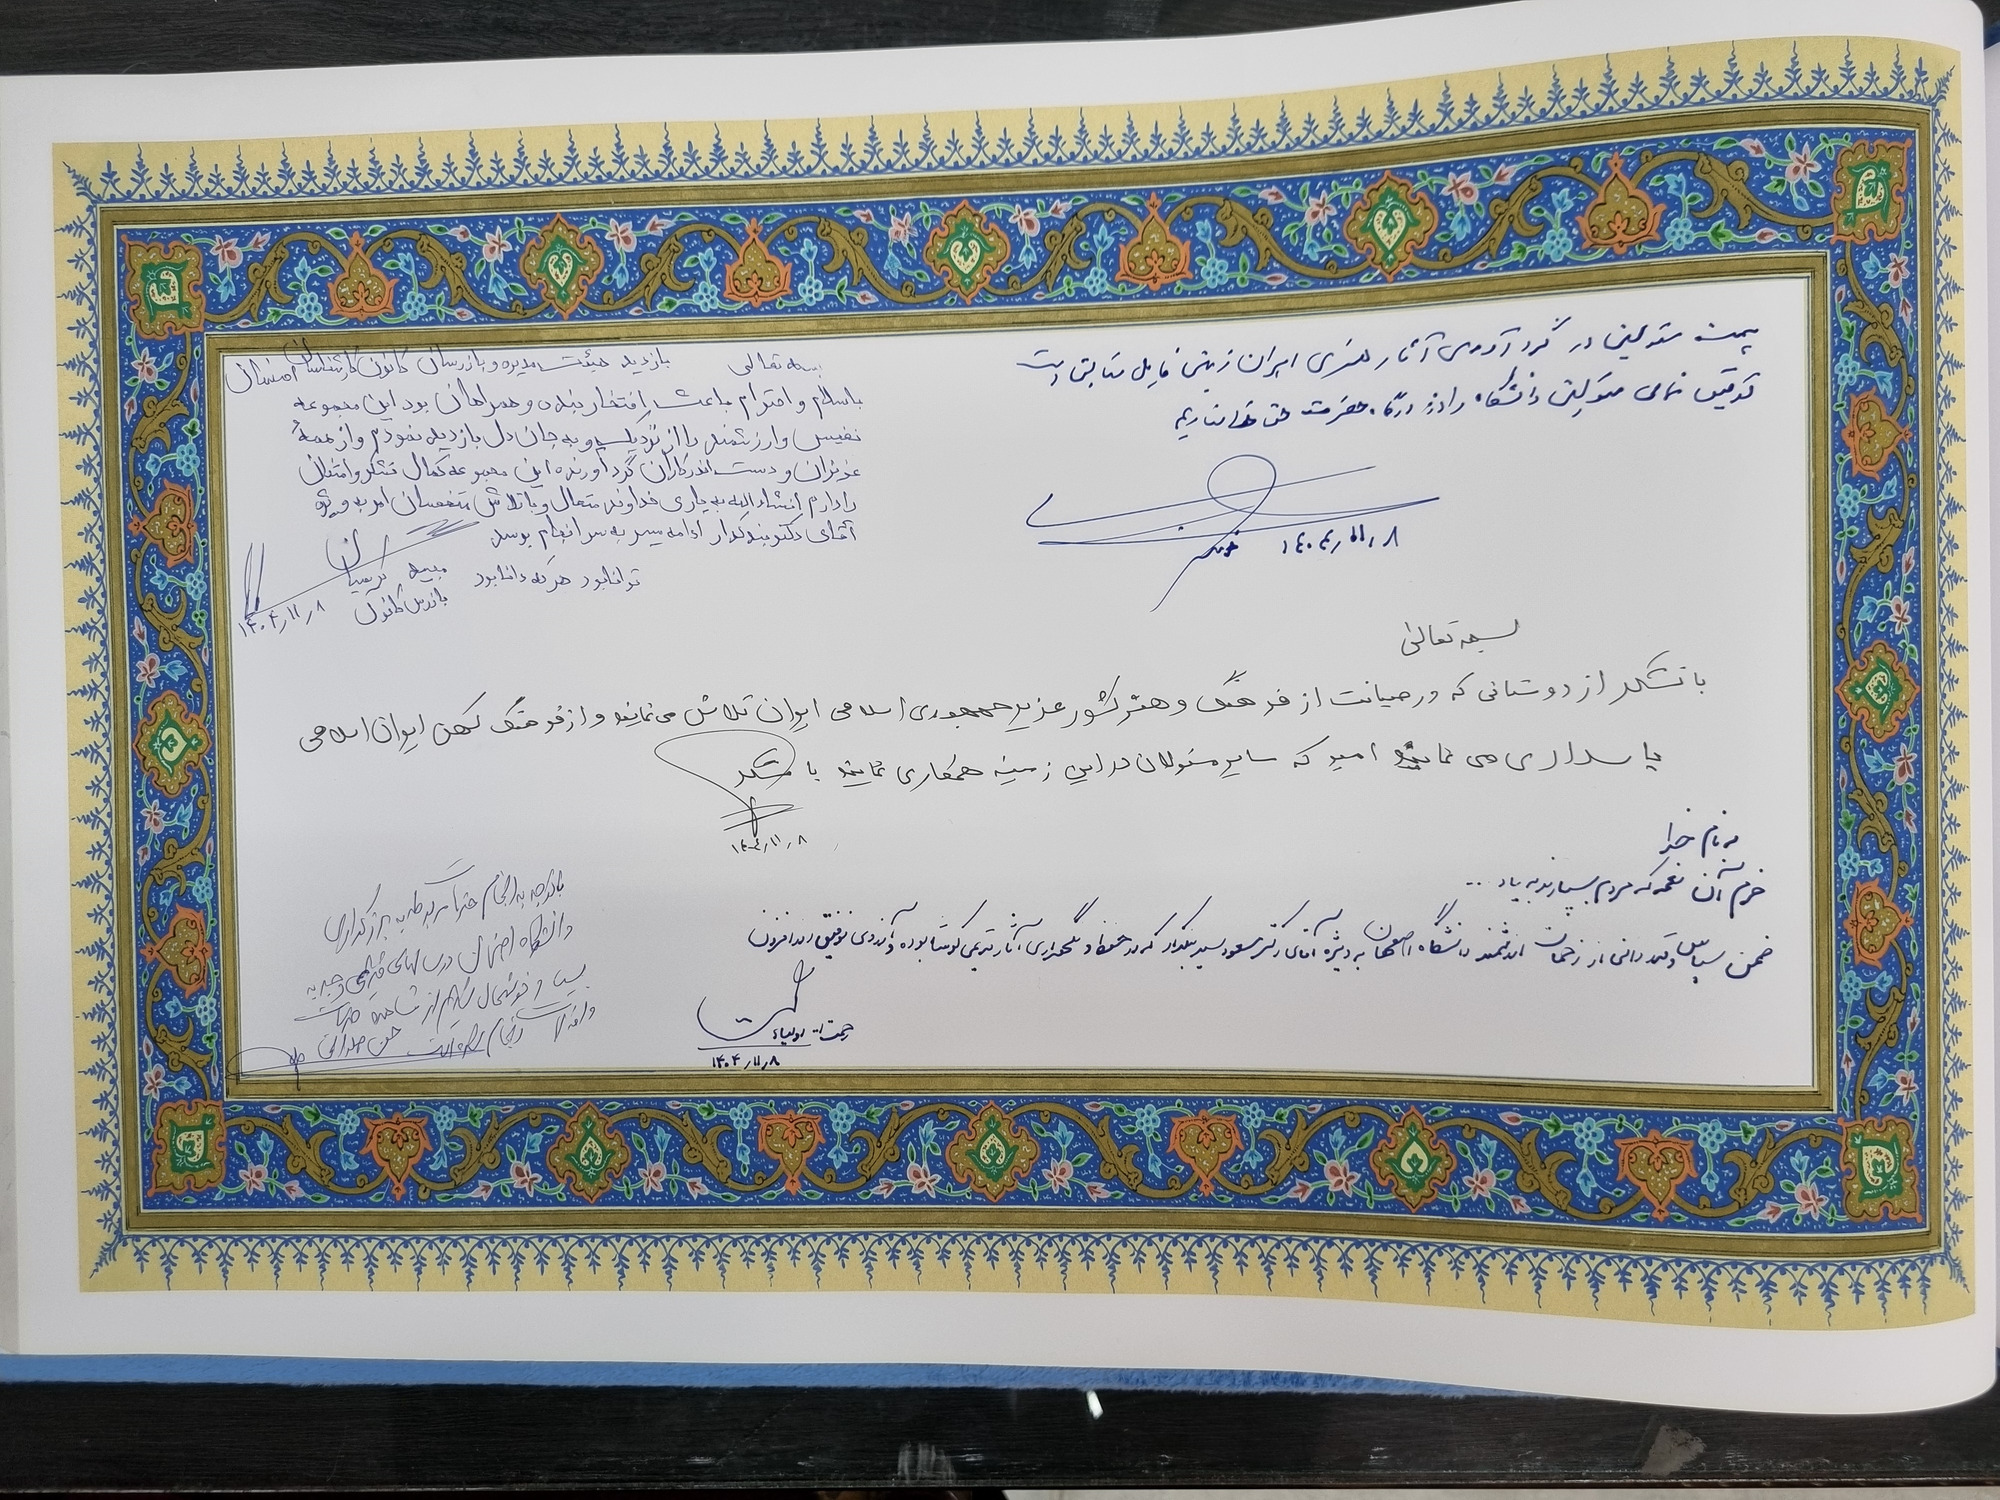 همت مسئولین در گردآوری آثار هنری ایران زمین قابل ستایش است
توفیق تمامی مسئولین دانشگاه را از درگاه حضرت حق خواستاریم
۱۴۰۴/۱۱/۸
بسمه تعالی
بازدید هیئت مدیره و بازرسان کانون کارشناسان استان
باسلام و احترام باعث افتخار بنده و همراهان بود این مجموعه
نفیس و ارزشمند را از نزدیک و به جان دل بازدید نمودم و از همه
عزیزان و دست اندرکاران گردآورنده این مجموعه کمال تشکر و امتنان
را دارم انشاءالله به یاری خداوند متعال و با تلاش متخصصان امر به ویژه
آقای دکتر بنکدار ادامه مسیر به سرانجام برسد
توانا بود هر که دانا بود
بازرس کانون
۱۴۰۴/۱۱/۸
بسمه تعالی
با تشکر از دوستانی که در صیانت از فرهنگ و هنر کشور عزیز جمهوری اسلامی ایران تلاش می نمایند و از فرهنگ کهن ایران اسلامی
پاسداری می نمایند امید که سایر مسئولان در این زمینه همکاری نمایند با تشکر
۱۴۰۴/۱۱/۸
به نام خدا
خرم آن نغمه که مردم بسپارند به یاد ...
ضمن سپاس و قدردانی از زحمات ارزشمند دانشگاه اصفهان به ویژه آقای دکتر مسعود سید بنکدار که در حفظ و نگهداری آثار قدیمی کوشا بوده و آرزوی توفیق روزافزون
رحمت اله اولیاء
۱۴۰۴/۱۱/۸
با توجه به انجام
دانشگاه اصفهان